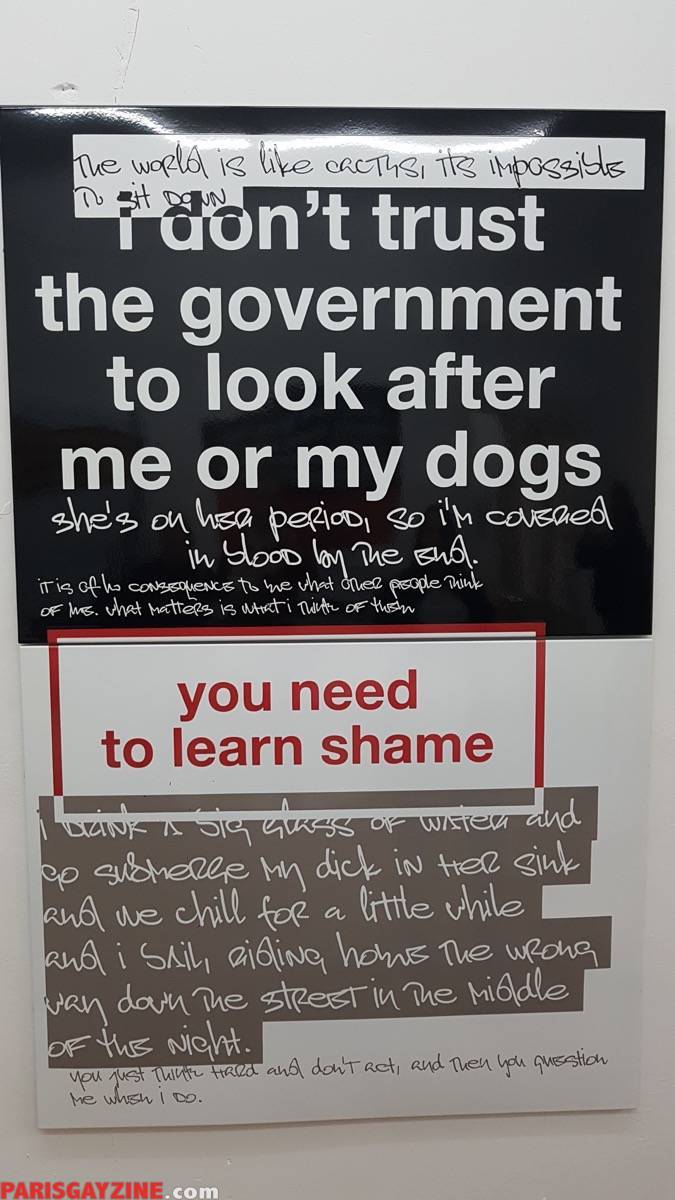 The world is like cactus, its impossible
To sit down
i don't trust
the government
to look after
me or my dogs
she's on her period, so i'm covered
in blood by the end.
it is of no consequence to me what other people think
of me. what matters is what i think of them
you need
to learn shame
i drink a big glass of water and
go submerge my dick in her sink
and we chill for a little while
and i bail, riding home the wrong
way down the street in the middle
of the night.
you just think hard and don't act, and then you question
me when i do.
PARISGAYZINE.com